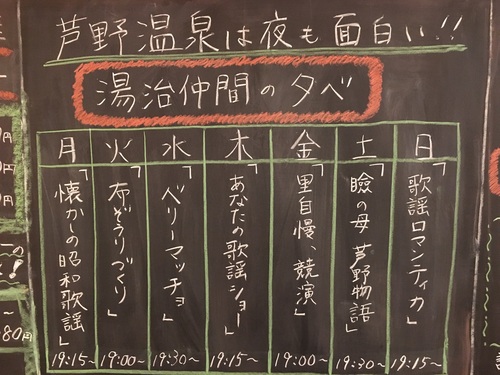 芦野温泉は夜も面白い!!
湯治仲間の夕べ
月 火 水 木 金 土 日
「懐かしの昭和歌謡」
「布ぞうりづくり」
「ベリーマッチョ」
「あなたの歌謡ショー」
「里自慢、競演」
「瞼の母 芦野物語」
「歌謡ロマンティカ」
19:15～ 19:00～ 19:30～ 19:15～ 19:00～ 19:30～ 19:15～
円
円
円
の
!
～
80円